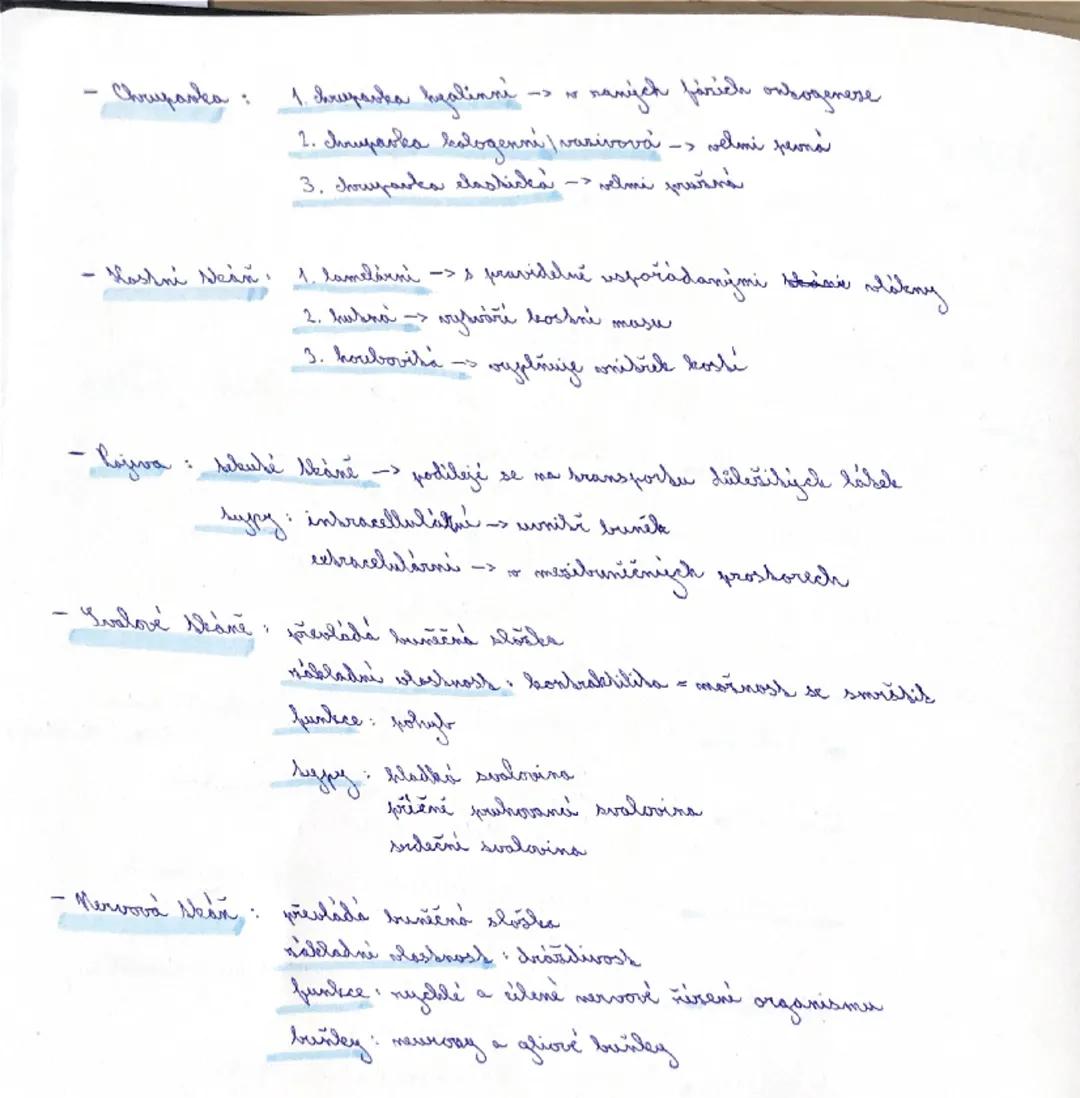 - Chrupavka : 1. chrupavka hyalinní -> v raných fázích ontogeneze
2. chrupavka kologenní/vazivová -> velmi pevná
3. chrupavka elastická -> velmi pružná
- Kostní tkáň : 1. lamelární -> s pravidelně uspořádanými vlákny
2. hutná -> vytváří kostní masu
3. houbovitá -> vyplňuje vnitřek kostí
- Pojiva : tekuté tkáně -> podílejé se na transportu důležitých látek
typy : intracellulární -> uvnitř buněk
extracelulární -> v mezibuněčných prostorech
- Svalové tkáně : převládá buněčná složka
základní vlastnost : kontraktilita = možnost se smrštit
funkce : pohyb
typy : hladká svalovina
příčně pruhovaná svalovina
srdeční svalovina
- Nervová tkáň : převládá buněčná složka
základní vlastnost : dráždivost
funkce : rychlé a cílené nervové řízení organismu
buňky : neurony a gliové buňky